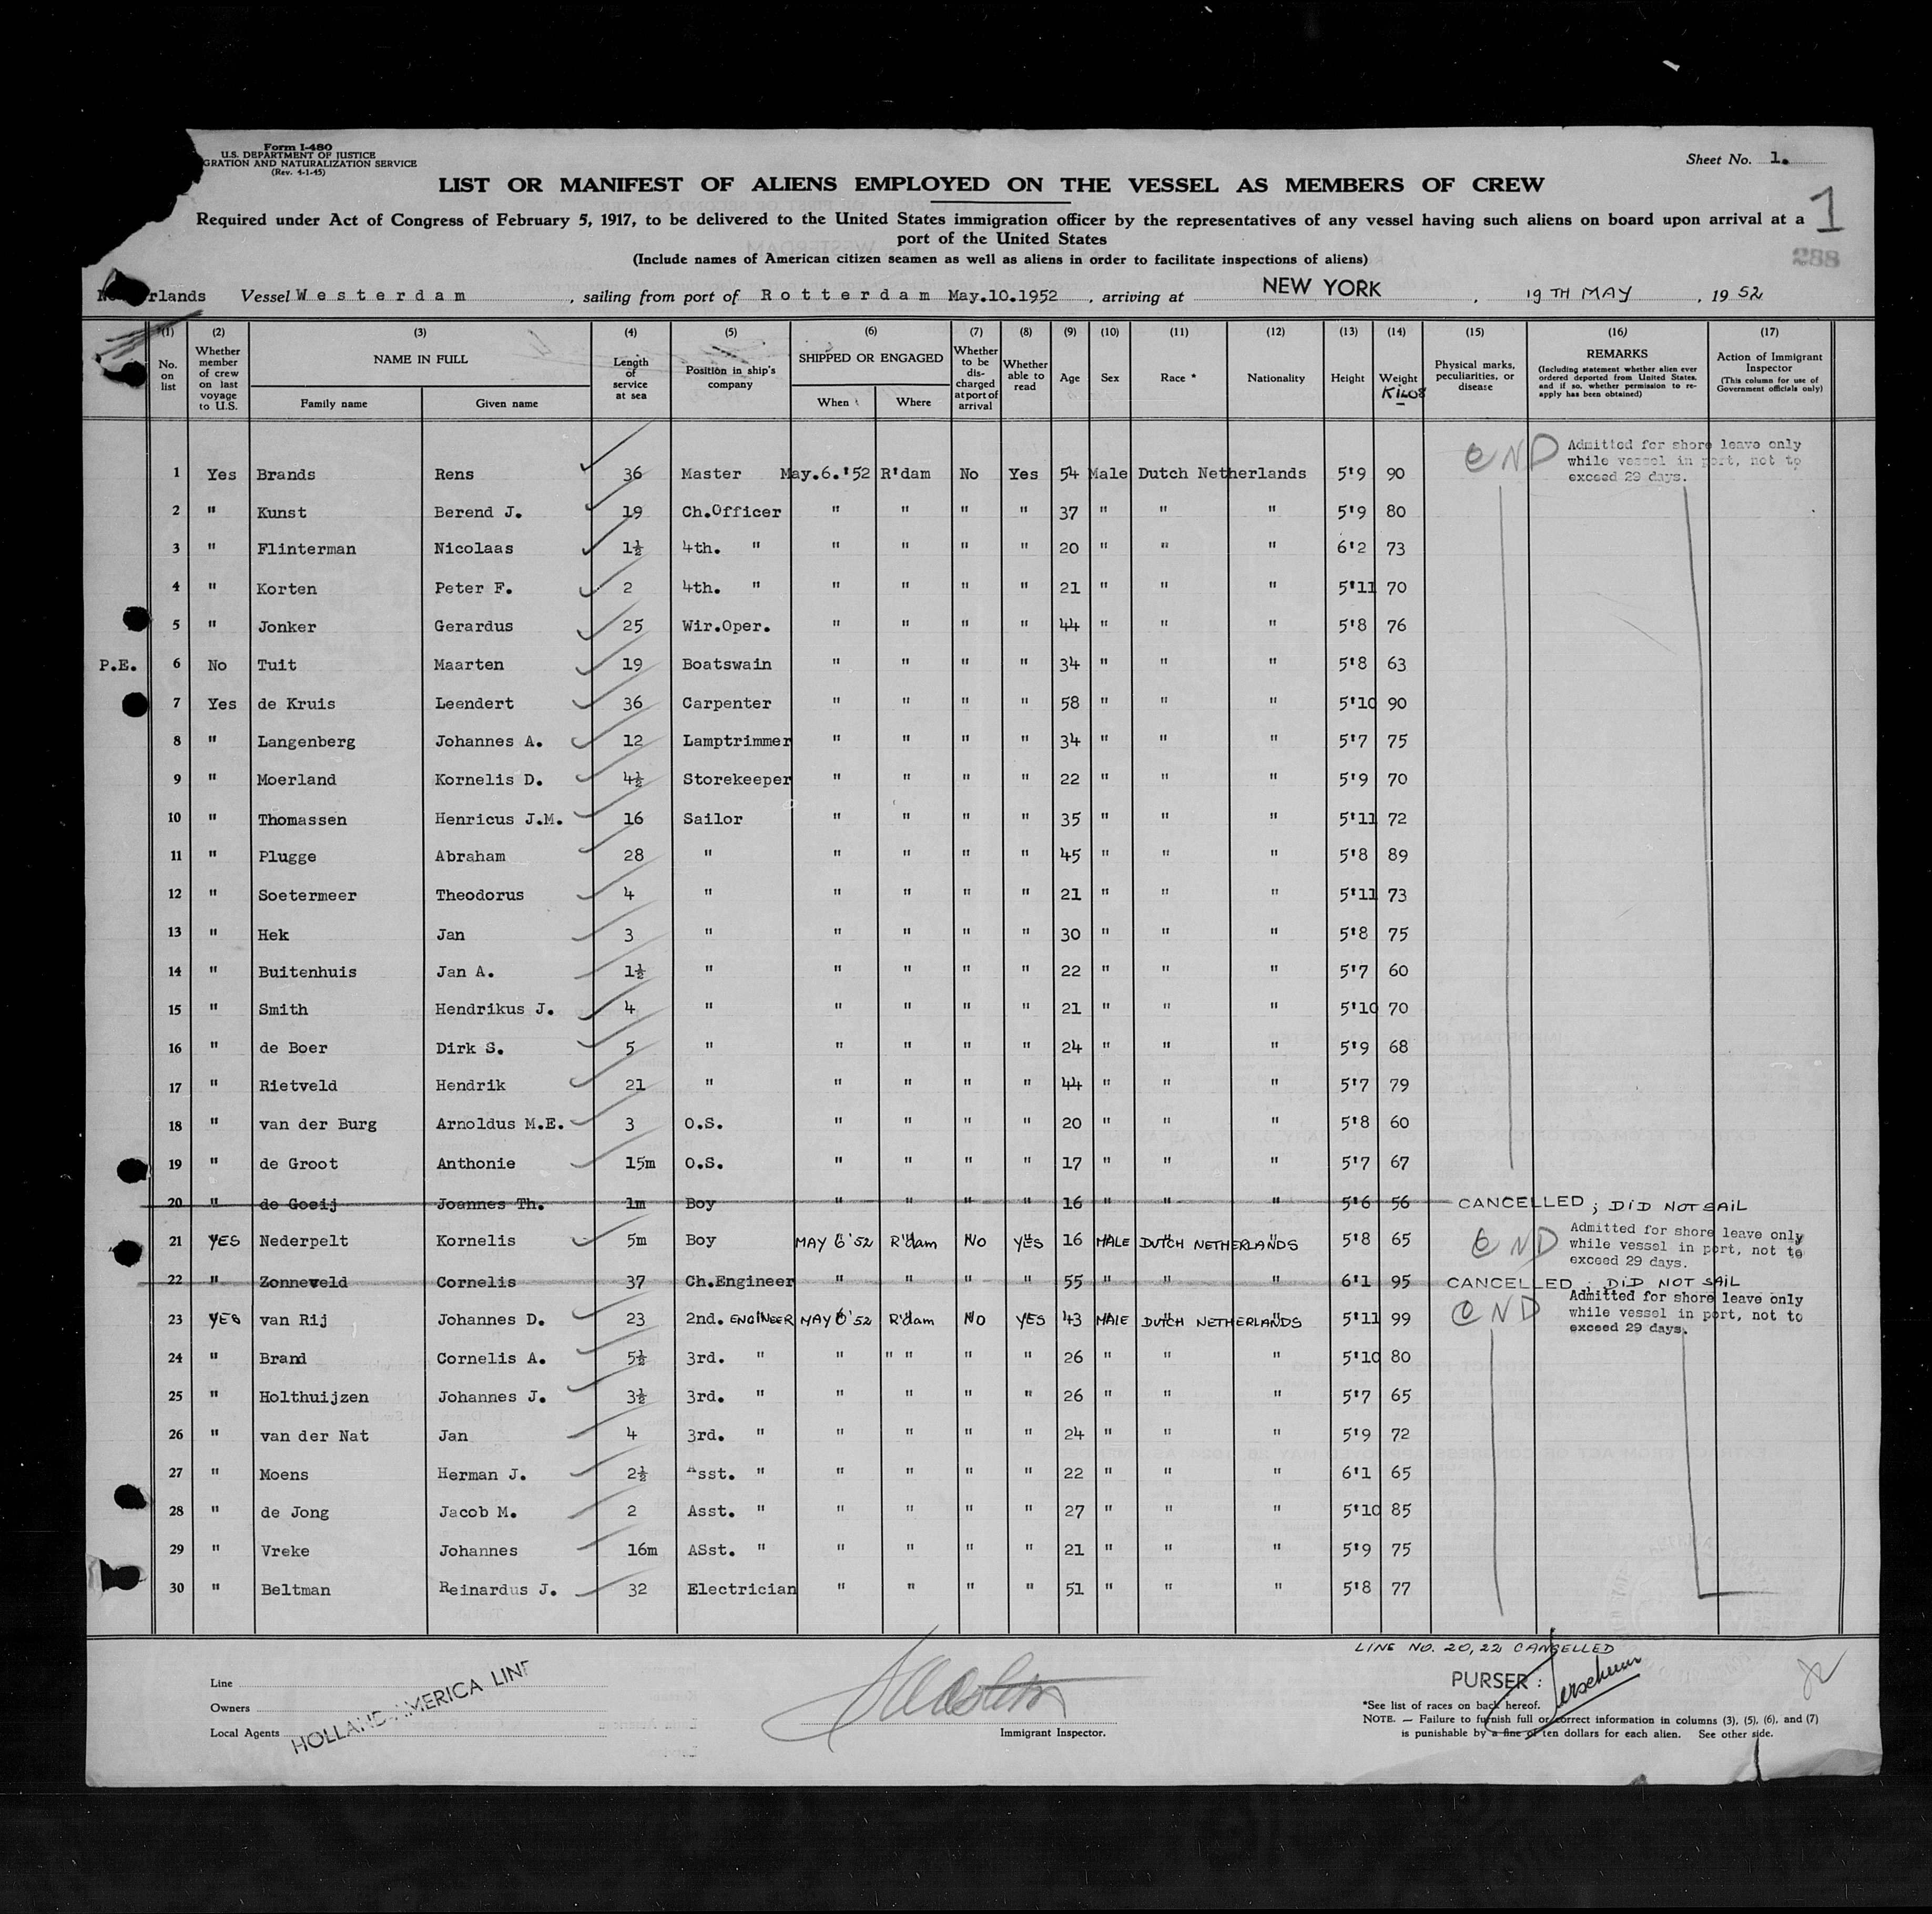 Form I-480
U.S. DEPARTMENT OF JUSTICE
GRATION AND NATURALIZATION SERVICE
(Rev. 4-1-45)
Sheet No. 1.
LIST OR MANIFEST OF ALIENS EMPLOYED ON THE VESSEL AS MEMBERS OF CREW
1
Required under Act of Congress of February 5, 1917, to be delivered to the United States immigration officer by the representatives of any vessel having such aliens on board upon arrival at a
port of the United States
(Include names of American citizen seamen as well as aliens in order to facilitate inspections of aliens)
288
rlands Vessel Westerdam, sailing from port of Rotterdam May.10.1952, arriving at NEW YORK, 19TH MAY, 1952
(1) (2) (3) (4) (5) (6) (7) (8) (9) (10) (11) (12) (13) (14) (15) (16) (17)
No. on list
Whether member of crew on last voyage to U.S.
NAME IN FULL
Family name
Given name
Length of service at sea
Position in ship's company
SHIPPED OR ENGAGED
When
Where
Whether to be discharged at port of arrival
Whether able to read
Age
Sex
Race *
Nationality
Height
Weight
KILOS
Physical marks, peculiarities, or disease
REMARKS
(Including statement whether alien ever ordered deported from United States, and if so, whether permission to reapply has been obtained)
Action of Immigrant Inspector
(This column for use of Government officials only)
Admitted for shore leave only
while vessel in port, not to
exceed 29 days.
1 Yes Brands Rens 36 Master May.6.'52 R'dam No Yes 54 Male Dutch Netherlands 5'9 90
2 " Kunst Berend J. 19 Ch.Officer " " " " 37 " " " 5'9 80
3 " Flinterman Nicolaas 1½ 4th. " " " " " 20 " " " 6'2 73
4 " Korten Peter F. 2 4th. " " " " " 21 " " " 5'11 70
5 " Jonker Gerardus 25 Wir.Oper. " " " " 44 " " " 5'8 76
P.E. 6 No Tuit Maarten 19 Boatswain " " " " 34 " " " 5'8 63
7 Yes de Kruis Leendert 36 Carpenter " " " " 58 " " " 5'10 90
8 " Langenberg Johannes A. 12 Lamptrimmer " " " " 34 " " " 5'7 75
9 " Moerland Kornelis D. 4½ Storekeeper " " " " 22 " " " 5'9 70
10 " Thomassen Henricus J.M. 16 Sailor " " " " 35 " " " 5'11 72
11 " Plugge Abraham 28 " " " " " 45 " " " 5'8 89
12 " Soetermeer Theodorus 4 " " " " " 21 " " " 5'11 73
13 " Hek Jan 3 " " " " " 30 " " " 5'8 75
14 " Buitenhuis Jan A. 1½ " " " " " 22 " " " 5'7 60
15 " Smith Hendrikus J. 4 " " " " " 21 " " " 5'10 70
16 " de Boer Dirk S. 5 " " " " " 24 " " " 5'9 68
17 " Rietveld Hendrik 21 " " " " " 44 " " " 5'7 79
18 " van der Burg Arnoldus M.E. 3 O.S. " " " " 20 " " " 5'8 60
19 " de Groot Anthonie 15m O.S. " " " " 17 " " " 5'7 67
20 " de Goeij Joannes Th. 1m Boy " " " " 16 " " " 5'6 56 CANCELLED; DID NOT SAIL
21 YES Nederpelt Kornelis 5m Boy MAY 6'52 R'dam NO YES 16 MALE DUTCH NETHERLANDS 5'8 65
Admitted for shore leave only
while vessel in port, not to
exceed 29 days.
22 " Zonneveld Cornelis 37 Ch.Engineer " " " " 55 " " " 6'1 95 CANCELLED; DID NOT SAIL
Admitted for shore leave only
while vessel in port, not to
exceed 29 days.
23 YES van Rij Johannes D. 23 2nd. ENGINEER MAY 6'52 R'dam NO YES 43 MALE DUTCH NETHERLANDS 5'11 99
24 " Brand Cornelis A. 5½ 3rd. " " " " " " 26 " " " 5'10 80
25 " Holthuijzen Johannes J. 3½ 3rd. " " " " " 26 " " " 5'7 65
26 " van der Nat Jan 4 3rd. " " " " " 24 " " " 5'9 72
27 " Moens Herman J. 2½ Asst. " " " " " 22 " " " 6'1 65
28 " de Jong Jacob M. 2 Asst. " " " " " 27 " " " 5'10 85
29 " Vreke Johannes 16m ASst. " " " " " 21 " " " 5'9 75
30 " Beltman Reinardus J. 32 Electrician " " " " 51 " " " 5'8 77
LINE NO. 20, 22 CANCELLED
Line
Owners
Local Agents
HOLLAND-AMERICA LINE
Immigrant Inspector.
PURSER:
*See list of races on back hereof.
NOTE. — Failure to furnish full or correct information in columns (3), (5), (6), and (7)
is punishable by a fine of ten dollars for each alien. See other side.